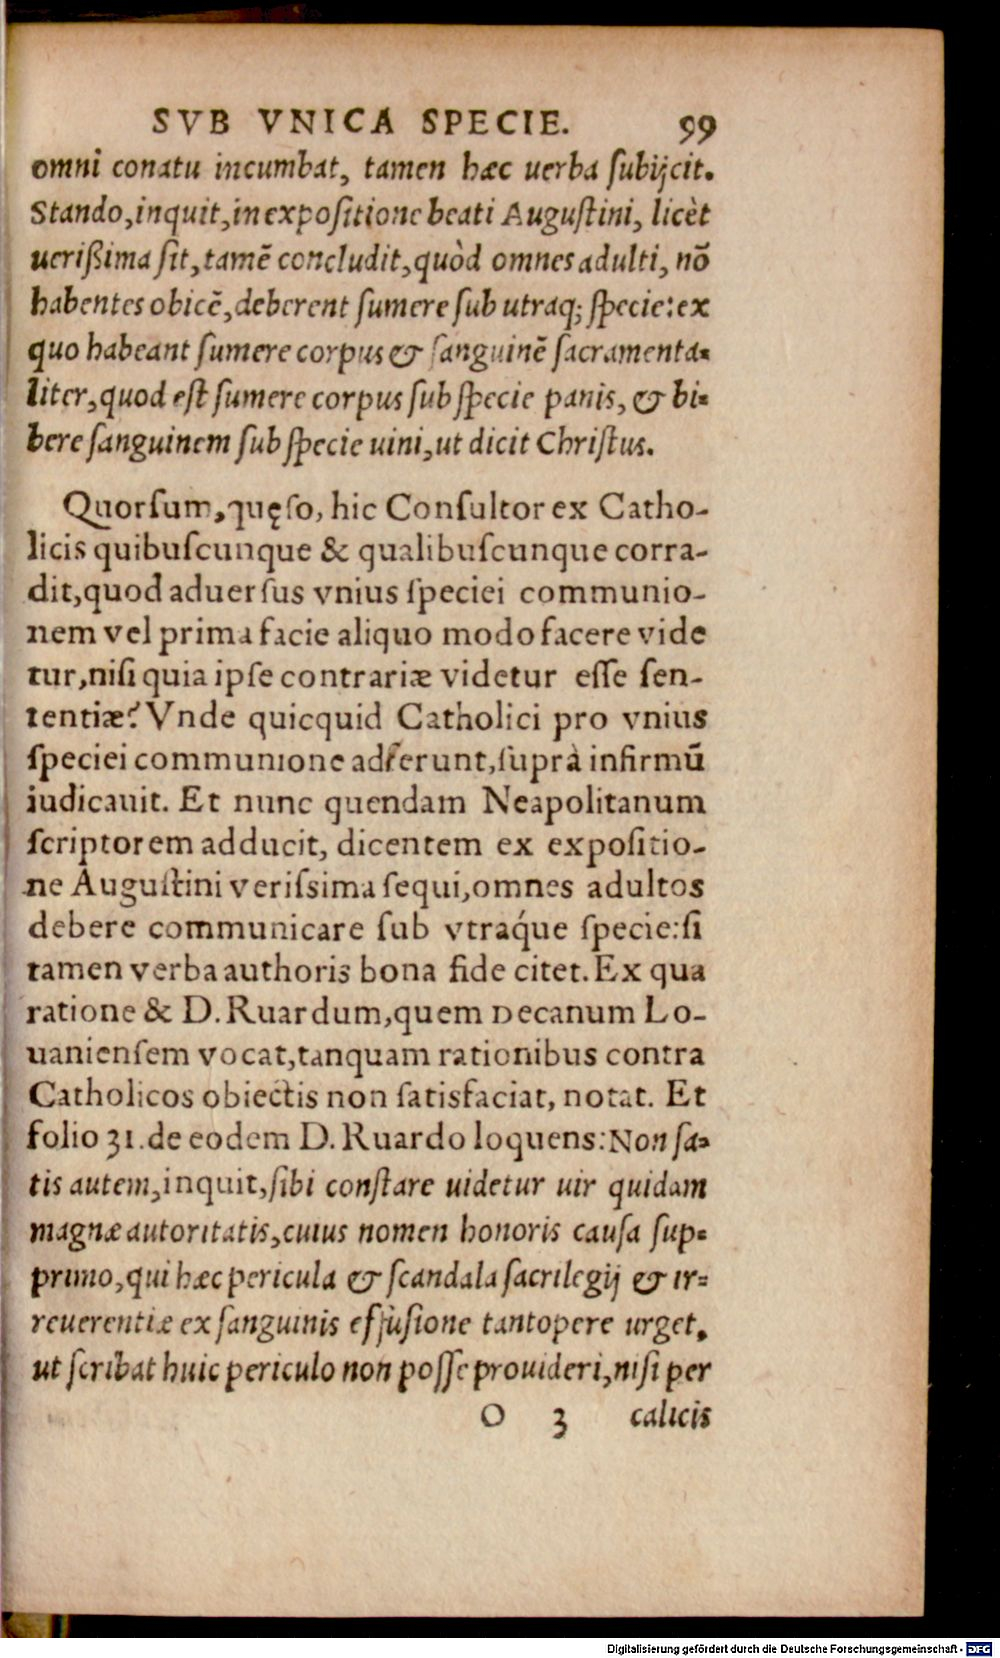 SVB VNICA SPECIE. 99
omni conatu incumbat, tamen hæc uerba ſubijcit.
Stando, inquit, in expoſitione beati Auguſtini, licèt
ueriſsima ſit, tamē concludit, quòd omnes adulti, nō
habentes obicē, deberent ſumere ſub utraq; ſpecie: ex
quo habeant ſumere corpus & ſanguinē ſacramenta-
liter, quod eſt ſumere corpus ſub ſpecie panis, & bi-
bere ſanguinem ſub ſpecie uini, ut dicit Chriſtus.
Quorſum, quęſo, hic Conſultor ex Catho-
licis quibuſcunque & qualibuſcunque corra-
dit, quod aduerſus vnius ſpeciei communio-
nem vel prima facie aliquo modo facere vide
tur, niſi quia ipſe contrariæ videtur eſſe ſen-
tentiæ? Vnde quicquid Catholici pro vnius
ſpeciei communione adferunt, ſuprà infirmū
iudicauit. Et nunc quendam Neapolitanum
ſcriptorem adducit, dicentem ex expoſitio-
ne Auguſtini veriſsima ſequi, omnes adultos
debere communicare ſub vtraq́ue ſpecie: ſi
tamen verba authoris bona fide citet. Ex qua
ratione & D. Ruardum, quem Decanum Lo-
uanienſem vocat, tanquam rationibus contra
Catholicos obiectis non ſatisfaciat, notat. Et
folio 31. de eodem D. Ruardo loquens: Non ſa-
tis autem, inquit, ſibi conſtare uidetur uir quidam
magnæ autoritatis, cuius nomen honoris cauſa ſup-
primo, qui hæc pericula & ſcandala ſacrilegij & ir-
reuerentiæ ex ſanguinis effuſione tantopere urget,
ut ſcribat huic periculo non poſſe prouideri, niſi per
O 3 calicis
Digitalisierung gefördert durch die Deutsche Forschungsgemeinschaft - DFG